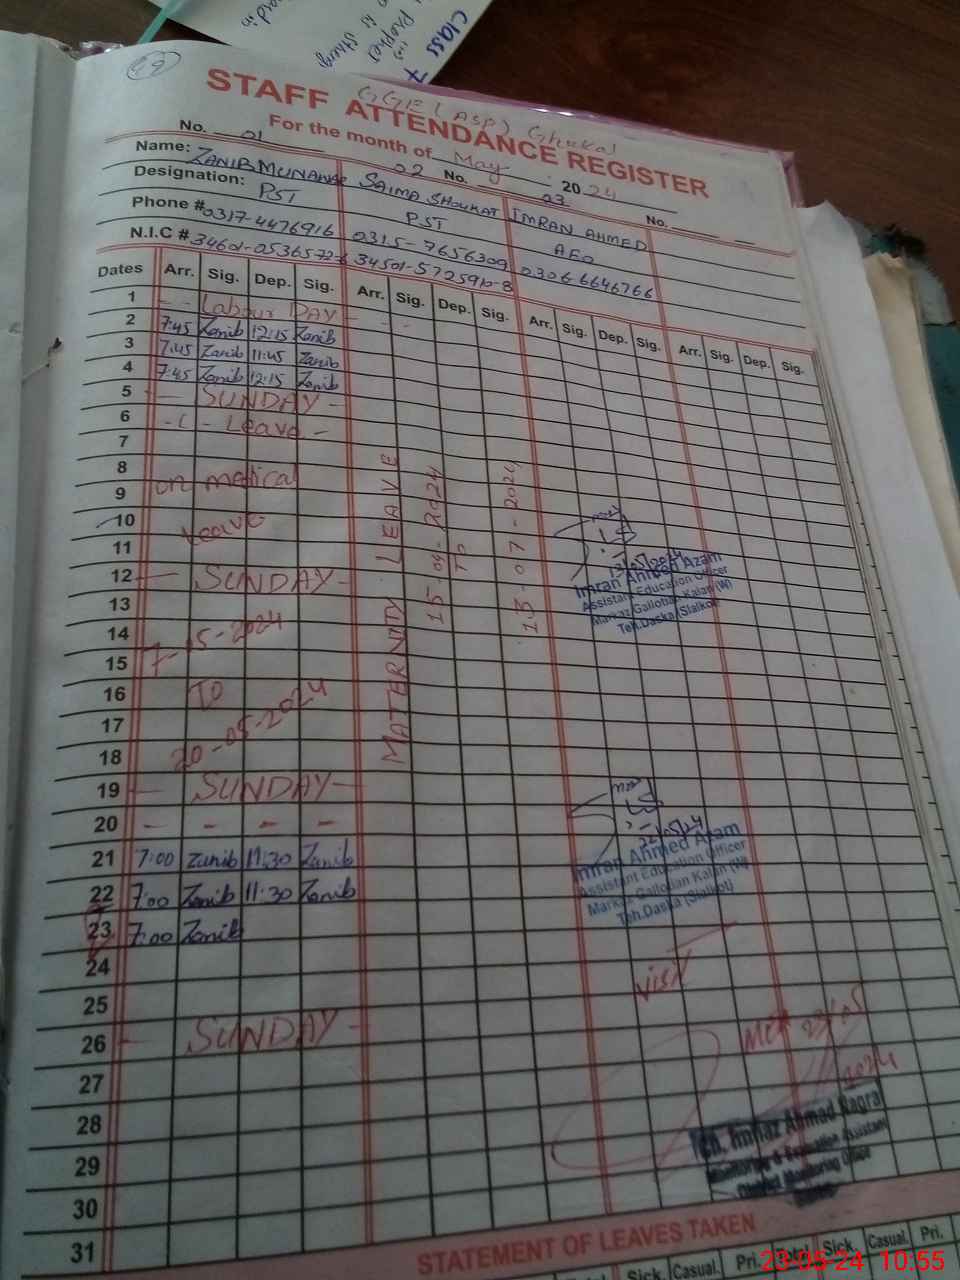 class 7
49
GGE (ASP) Ghukal
STAFF ATTENDANCE REGISTER
For the month of May 2024
No. 01 02 No. 03 No.
Name: ZANIB MUNAWAR SAIMA SHOUKAT IMRAN AHMED
Designation: PST PST AEO
Phone # 0317-4476916 0315-7656309 0306 6646766
N.I.C # 34501-5725910-8
Dates Arr. Sig. Dep. Sig. Arr. Sig. Dep. Sig. Arr. Sig. Dep. Sig. Arr. Sig. Dep. Sig.
1 -- Labour DAY --
2 7:45 Zanib 12:15 Zanib
3 7:45 Zanib 11:45 Zanib
4 7:45 Zanib 12:15 Zanib
5 - SUNDAY -
6 - Leave -
7
8 on medical
9
10 Leave
11
12 - SUNDAY -
13
14 7-05-2024
15
16 TO
17
18 20-05-2024
19 - SUNDAY -
20 - - - -
21 7:00 Zanib 11:30 Zanib
22 7:00 Zanib 11:30 Zanib
23 7:00 Zanib
24
25
26 - SUNDAY -
27
28
29
30
31
MATERNITY LEAVE
15-04-2024
TO
13-07-2024
13/05/2024
Imran Ahmed Azam
Assistant Education Officer
Markaz Gallotian Kalan (W)
Teh.Daska (Sialkot)
22/05/24
Imran Ahmed Azam
Assistant Education Officer
Markaz Gallotian Kalan (W)
Teh.Daska (Sialkot)
visit
MEA 23/05
2024
Ch. Imtiaz Ahmad Nagra
Monitoring & Evaluation Assistant
District Monitoring Office
STATEMENT OF LEAVES TAKEN
Sick. Casual. Pri. Total Sick. Casual. Pri.
23-05-24 10:55